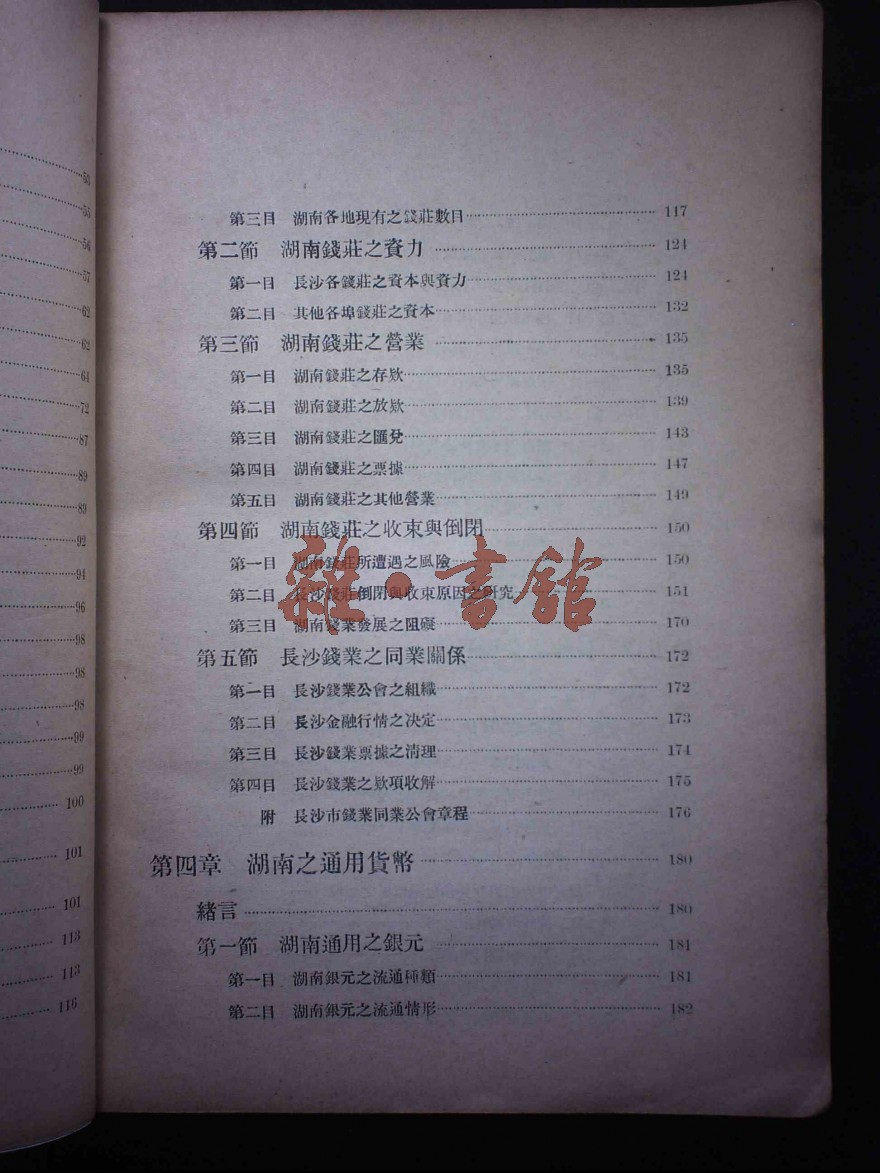 53
55
56
57
62
62
64
72
87
89
89
92
94
96
98
98
98
99
99
100
101
101
113
113
116
第三目 湖南各地現有之錢莊數目 117
第二節 湖南錢莊之資力 124
第一目 長沙各錢莊之資本與資力 124
第二目 其他各埠錢莊之資本 132
第三節 湖南錢莊之營業 135
第一目 湖南錢莊之存欵 135
第二目 湖南錢莊之放欵 139
第三目 湖南錢莊之匯兌 143
第四目 湖南錢莊之票據 147
第五目 湖南錢莊之其他營業 149
第四節 湖南錢莊之收束與倒閉 150
第一目 湖南錢莊所遭遇之風險 150
第二目 長沙錢莊倒閉與收束原因之研究 151
第三目 湖南錢業發展之阻礙 170
第五節 長沙錢業之同業關係 172
第一目 長沙錢業公會之組織 172
第二目 長沙金融行情之决定 173
第三目 長沙錢業票據之清理 174
第四目 長沙錢業之欵項收解 175
附 長沙市錢業同業公會章程 176
第四章 湖南之通用貨幣 180
緒言 180
第一節 湖南通用之銀元 181
第一目 湖南銀元之流通種類 181
第二目 湖南銀元之流通情形 182
雜·書館